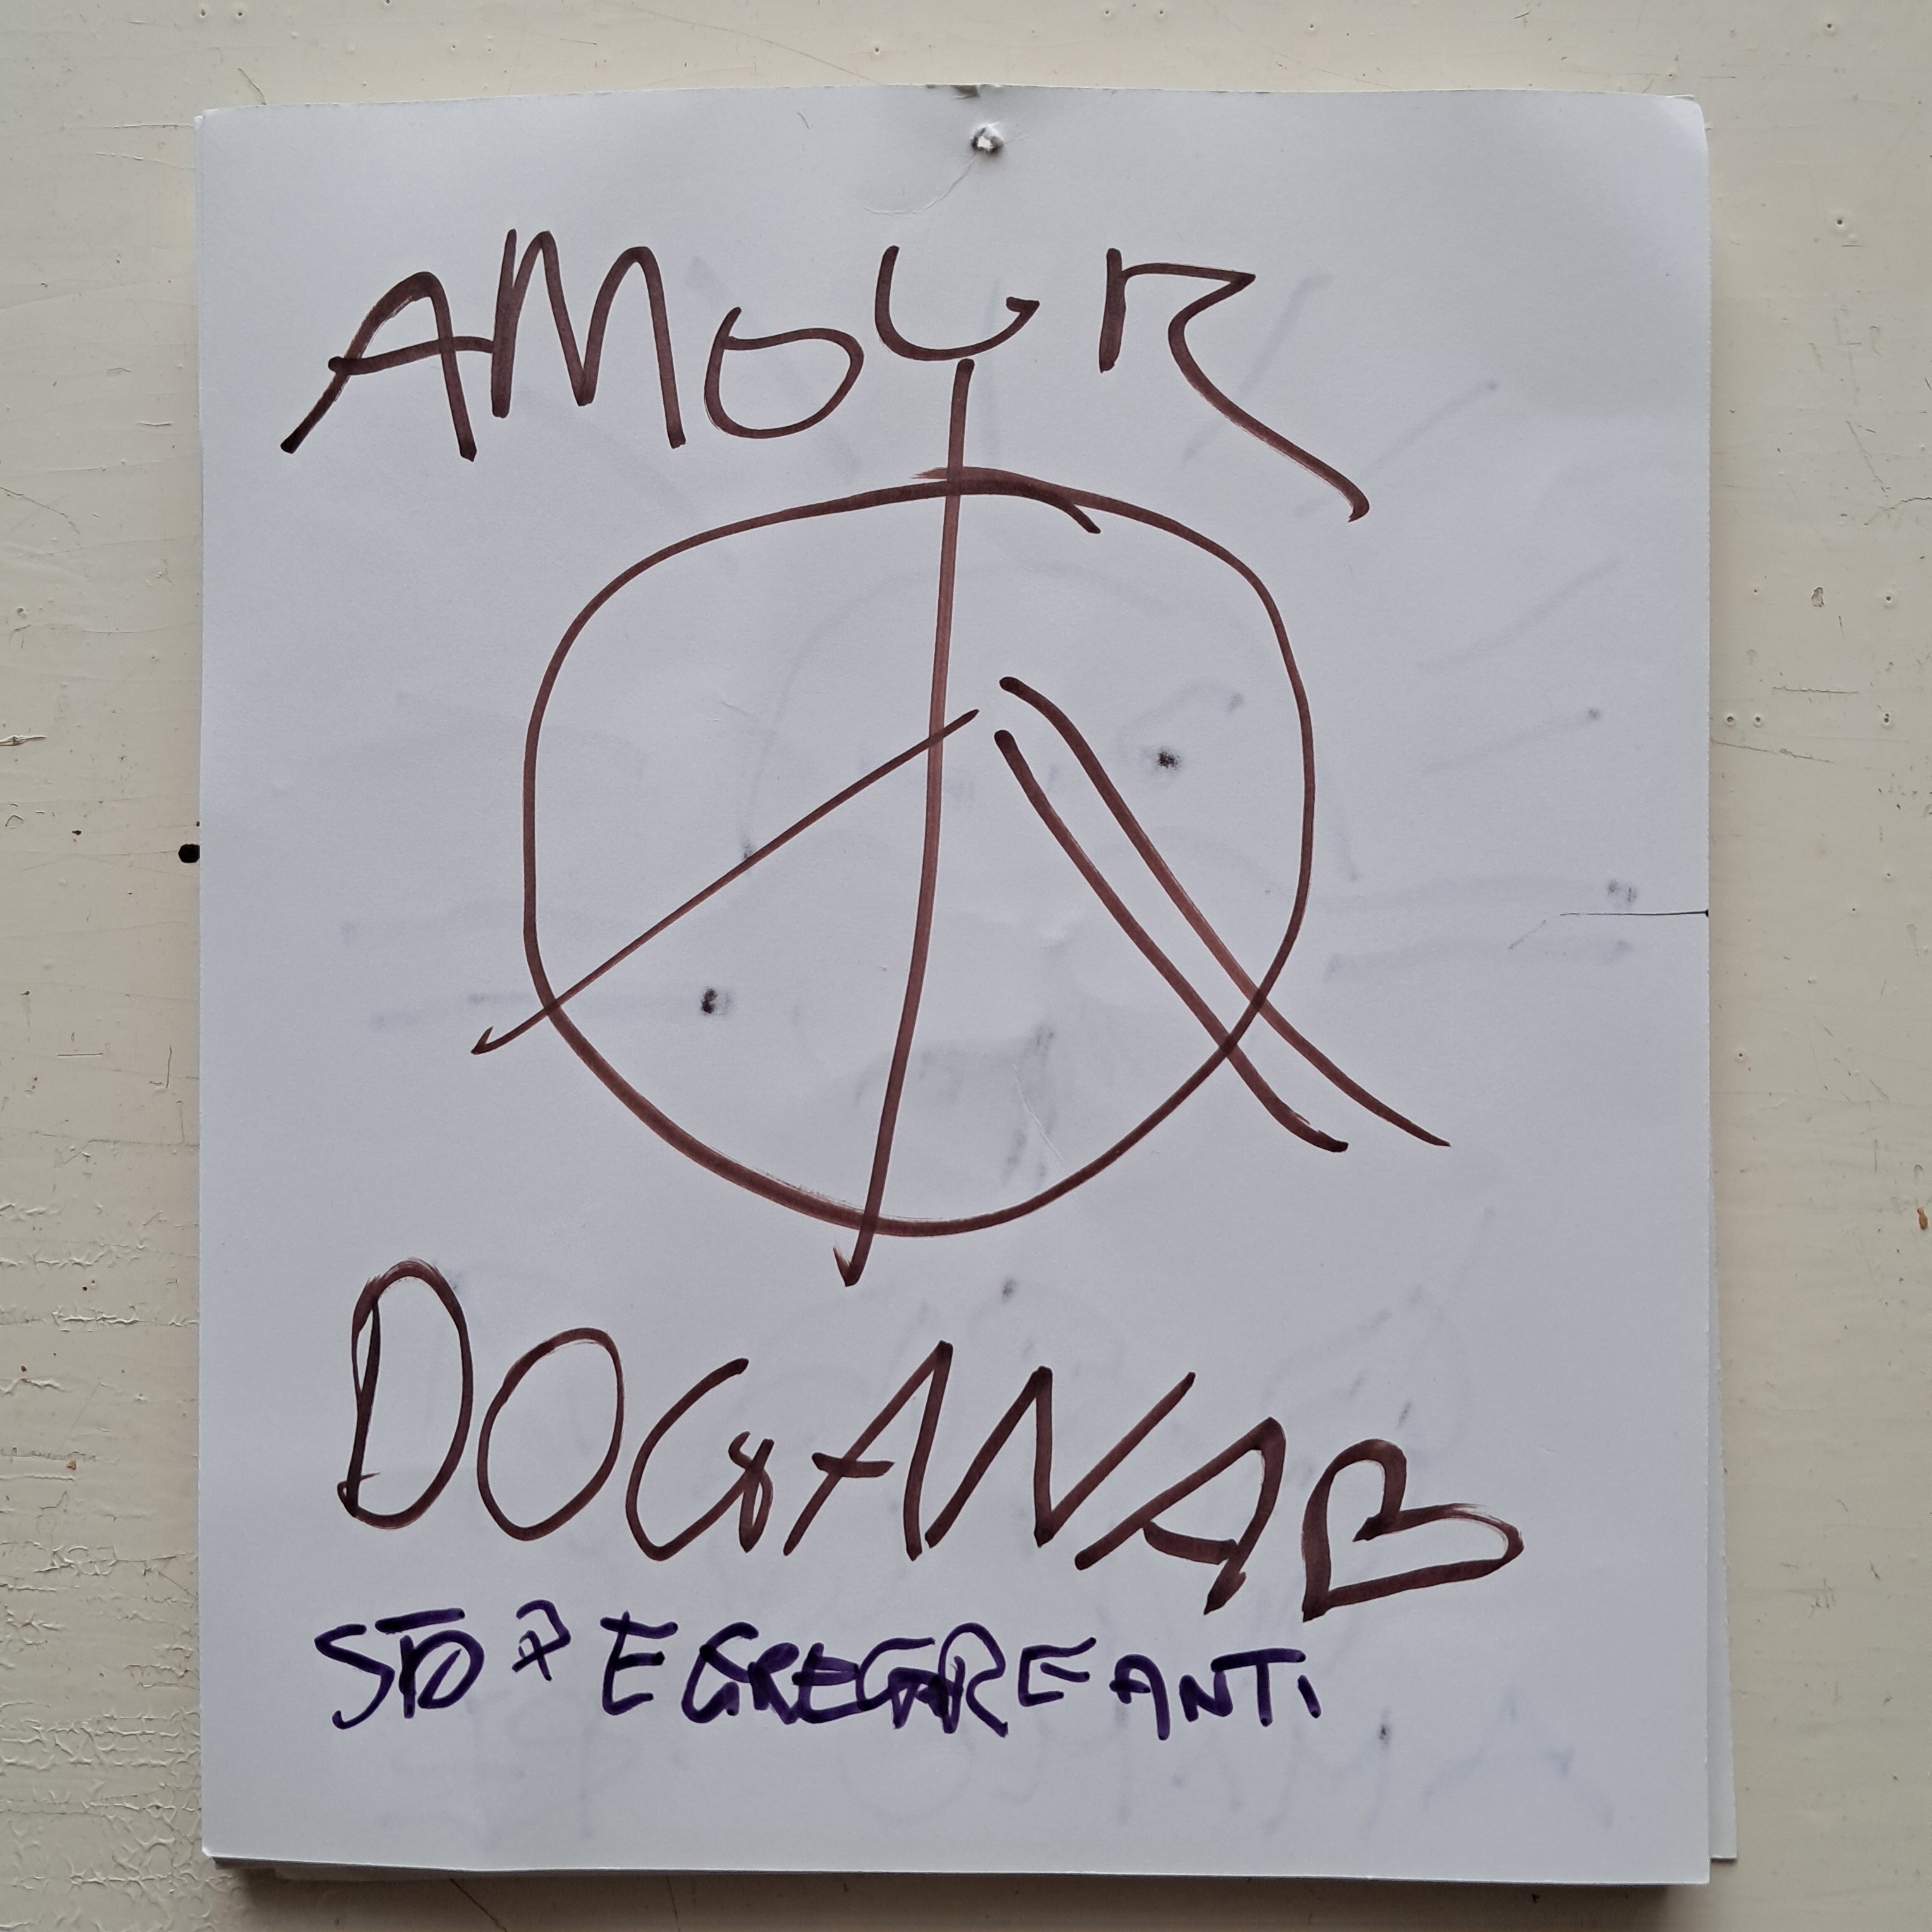 AMOUR
DOGANAB
STOP EGREGRE ANTI